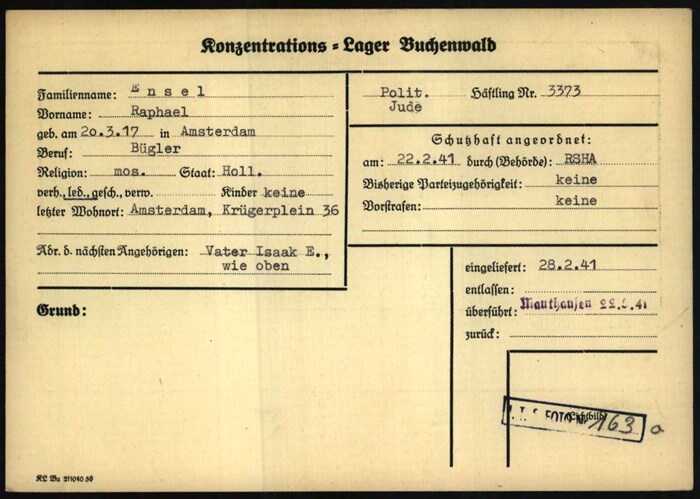 Konzentrations = Lager Buchenwald
Familienname: Ensel
Vorname: Raphael
geb. am 20.3.17 in Amsterdam
Beruf: Bügler
Religion: mos. Staat: Holl.
verh., led., gesch., verw. Kinder keine
letzter Wohnort: Amsterdam, Krügerplein 36
Adr. d. nächsten Angehörigen: Vater Isaak E.,
wie oben
Grund:
Polit. Häftling Nr. 3373
Jude
Schutzhaft angeordnet:
am: 22.2.41 durch (Behörde): RSHA
Bisherige Parteizugehörigkeit: keine
Vorstrafen: keine
eingeliefert: 28.2.41
entlassen:
überführt: Mauthausen
zurück:
(Lichtbild)
I.T.S. FOTO Nr 163 a
KL Bu 211040 50